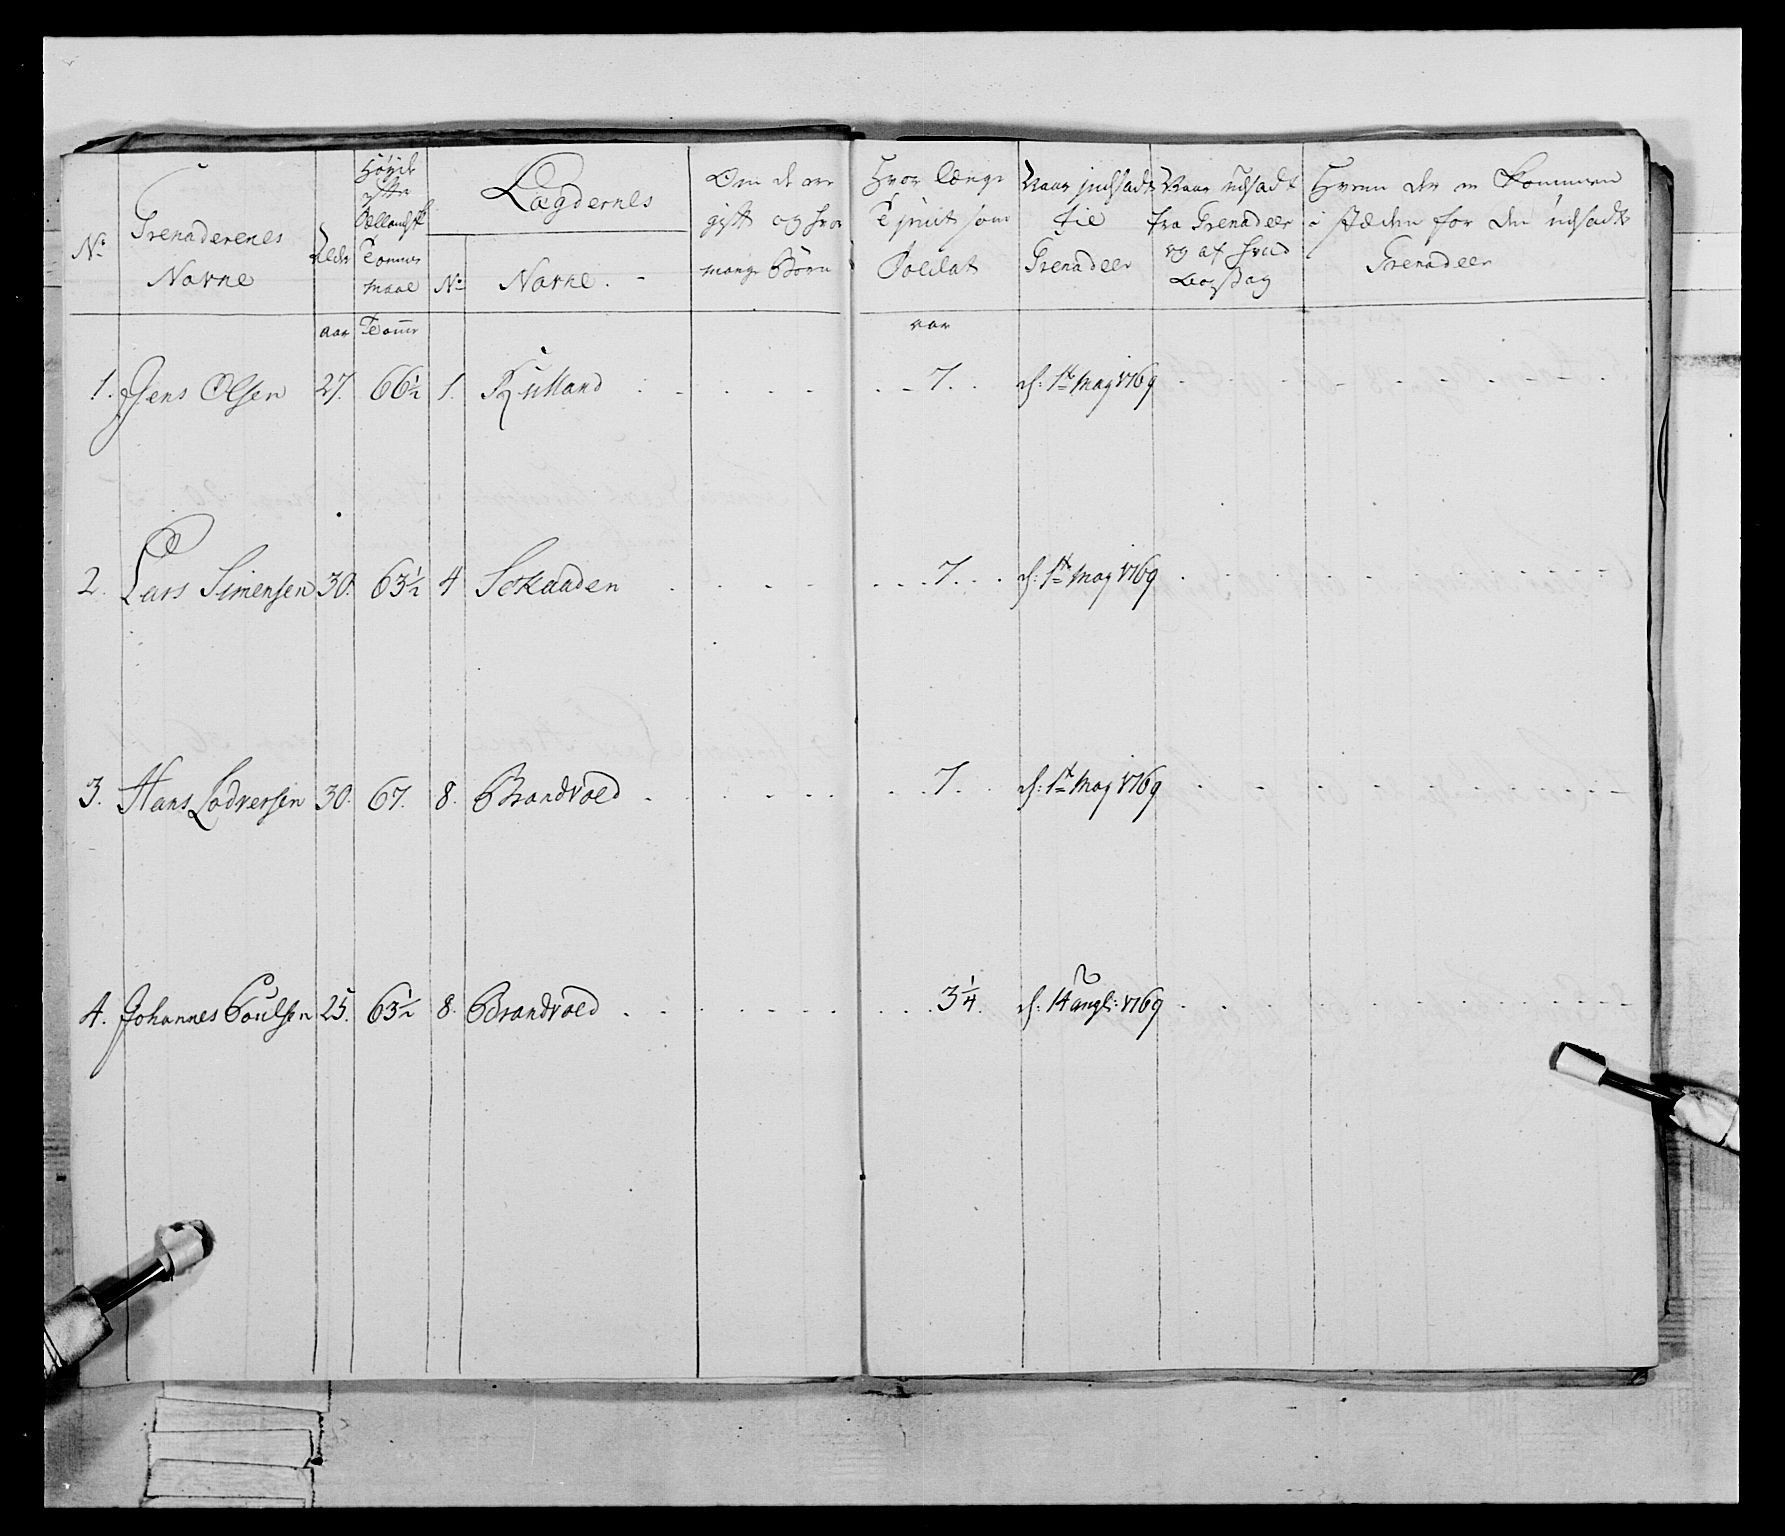 No
Grenaderenes
Navne
Alder
Høyde
efter
Siellandsk
Tomme
maal
Lægdernes
No Navne.
Om de ere
gift og hvor
mange Børn
Hvor længe
Tient som
Soldat
Naar indsadt
til
Grenadeer
Naar udsadt
fra Grenadeer
og af hvad
Aarsag
Hvem der er kommen
i stæden for den udsadte
Grenadeer
aar Tomr aar
1. Jens Olsen 27. 66½ 1. Kulland 7. d: 1te May 1769
2. Lars Simensen 30. 63½ 4 Sckaaden 7. d: 1te May 1769
3. Hans Ladversen 30. 67. 8. Brandvold 7. d: 1te May 1769
4. Johannes Poulsen 25. 63½ 8. Brandvold 3¼. d: 14 augl: 1769